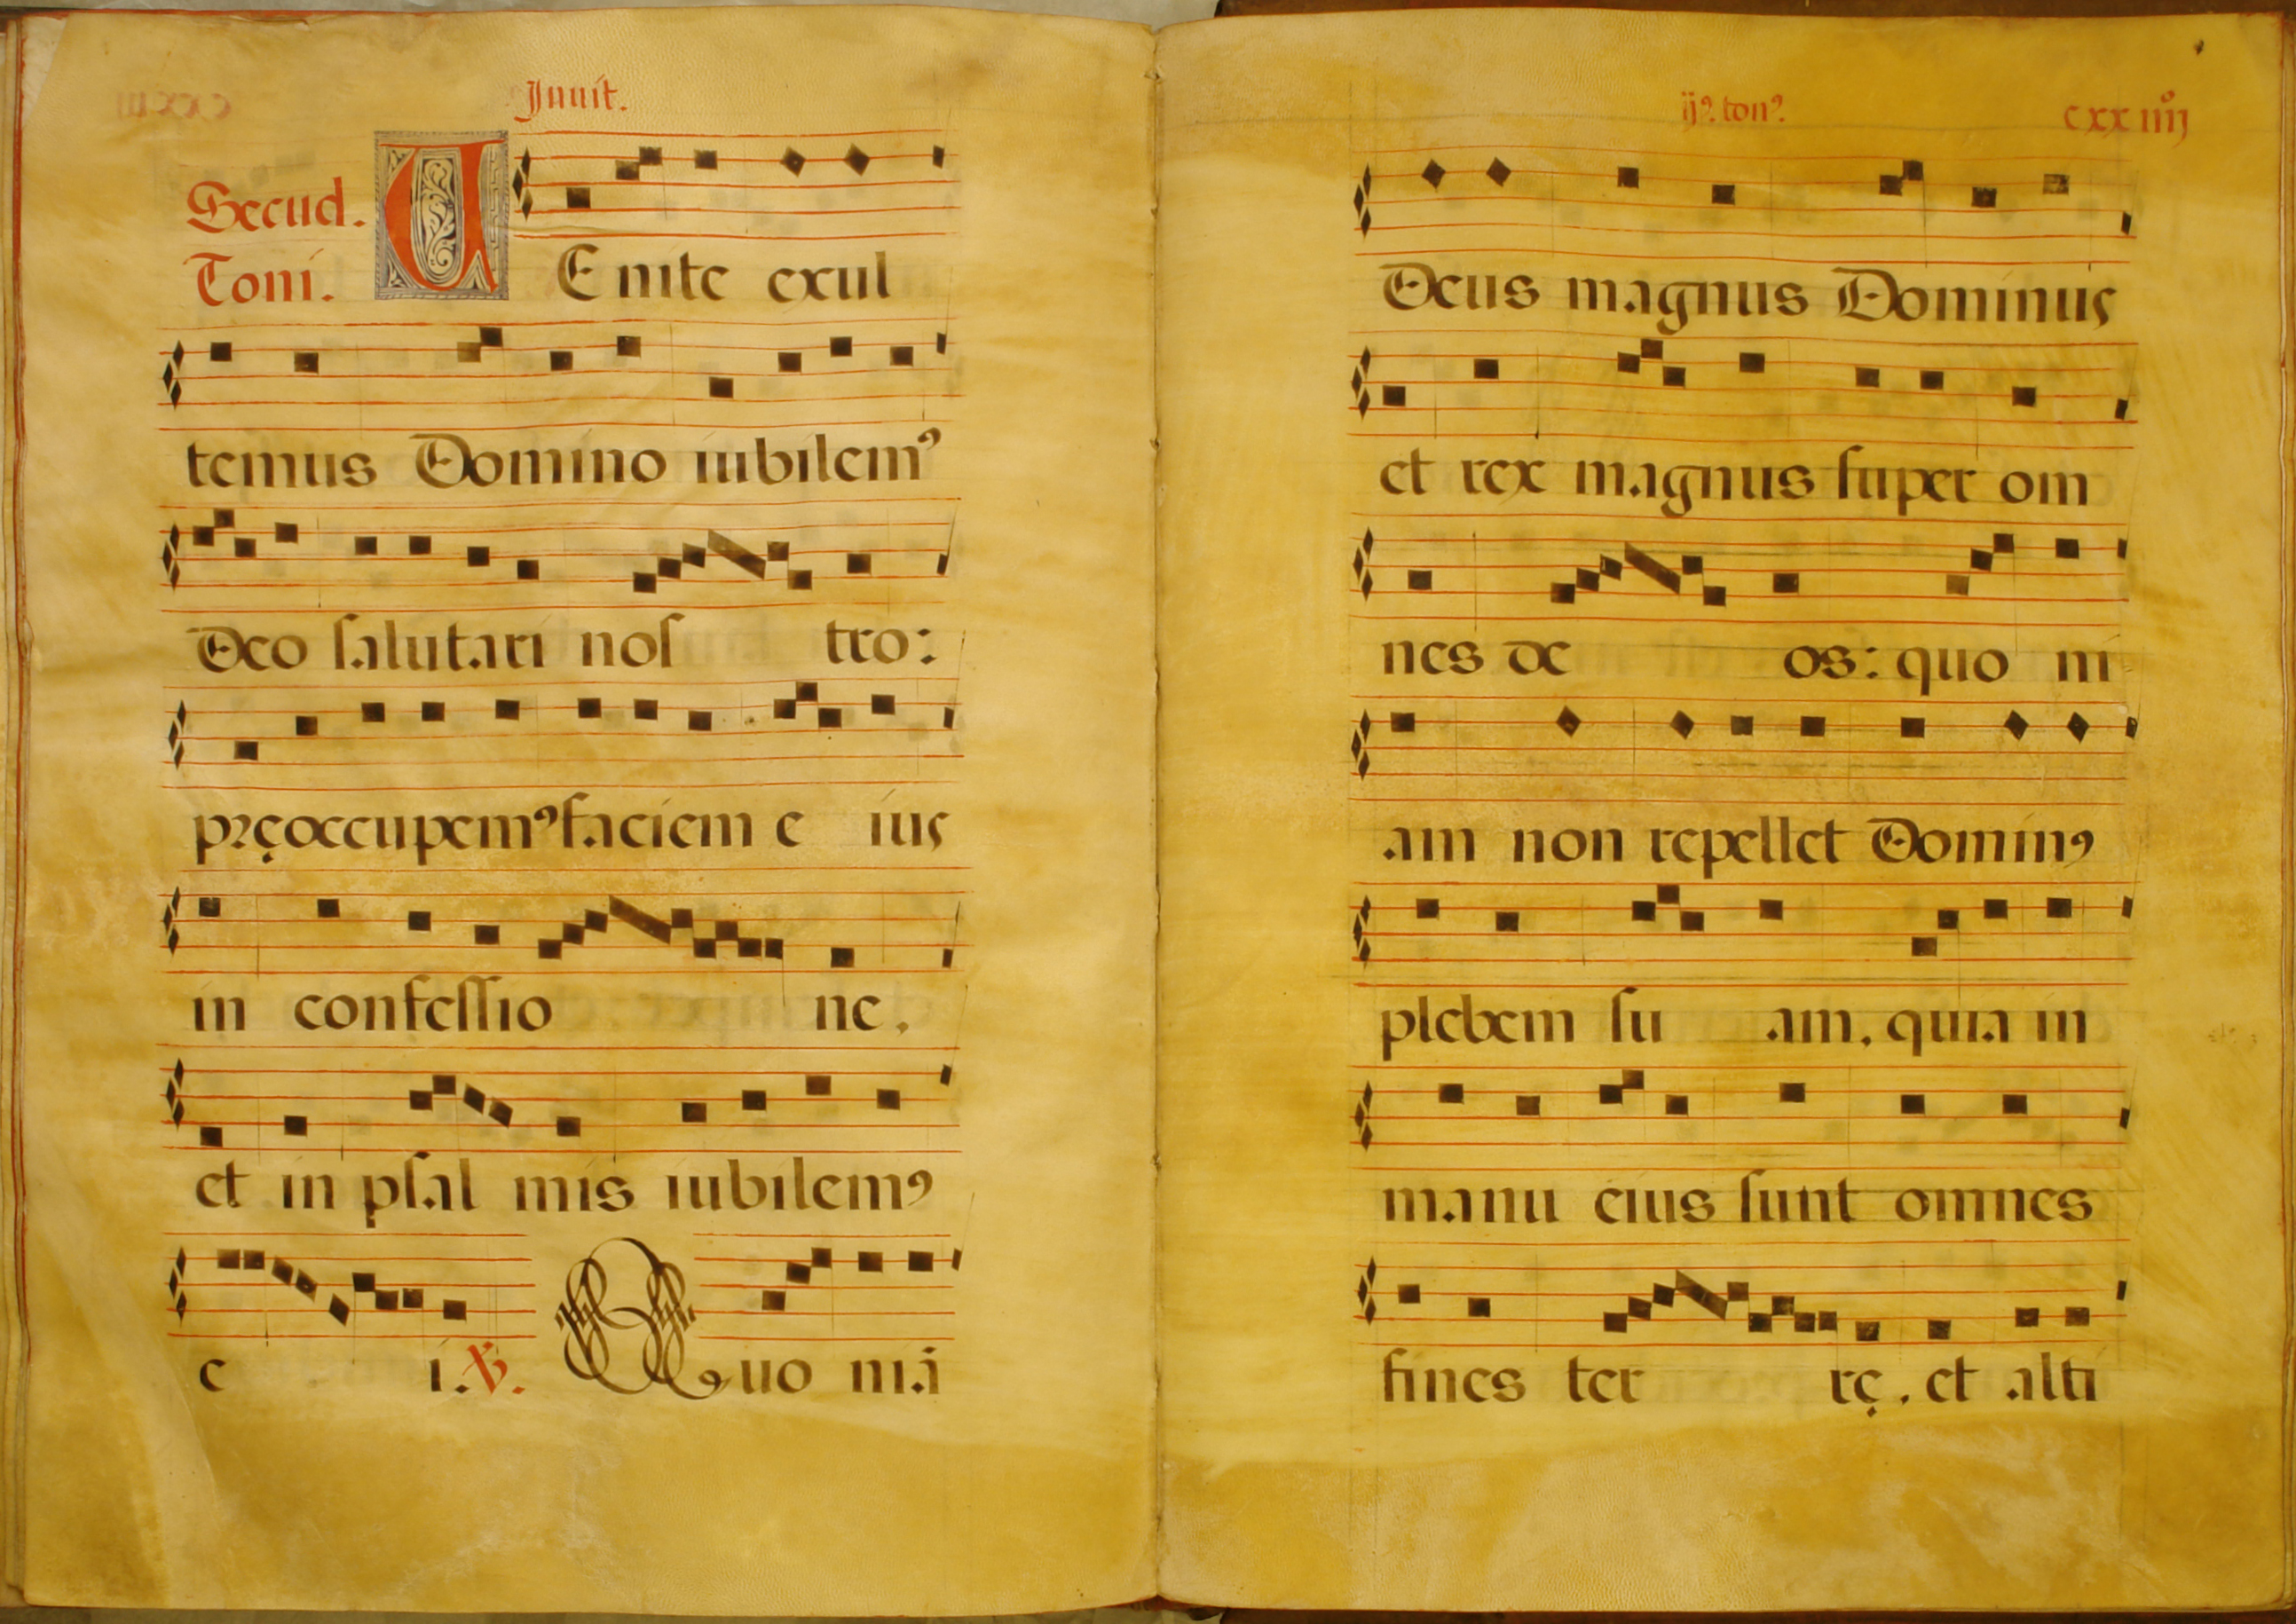 Inuit.
Secud.
Toni.
VEnite exul
temus Domino iubilemꝰ
Deo salutari nos tro:
pręoccupemꝰ faciem e ius
in confessio ne.
et in psal mis iubilemꝰ
e i. ℣.
Quo niā
ijꝰ. tonꝰ.
cxxiiij
Deus magnus Dominus
et rex magnus super om
nes de os: quo ni
am non repellet Dominꝰ
plebem su am. quia in
manu eius sunt omnes
fines ter rę. et alti